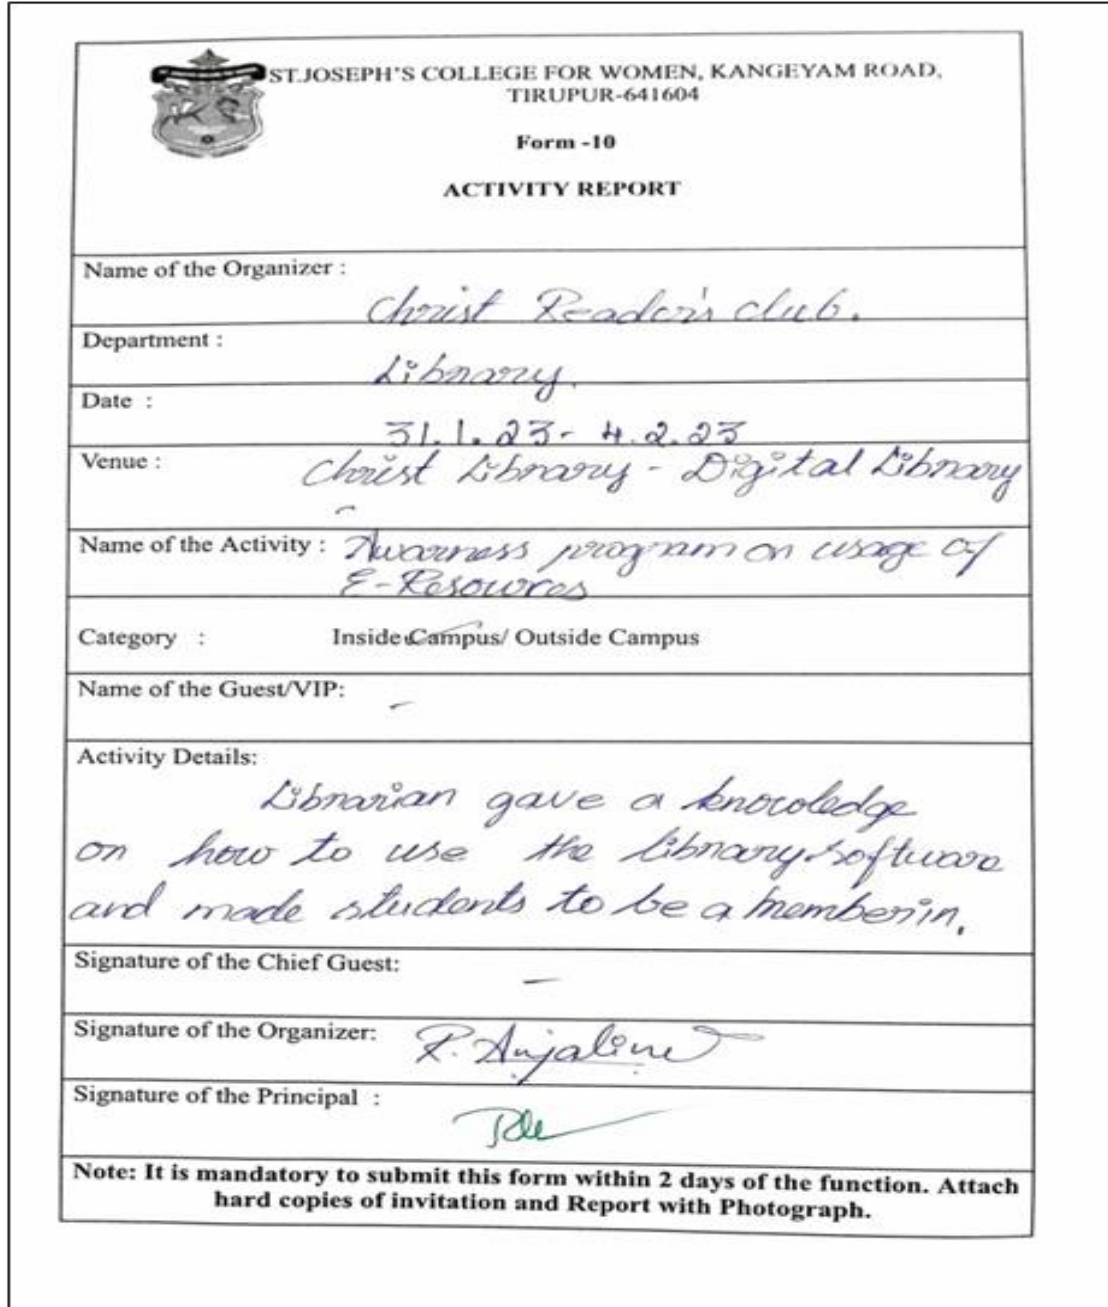 ST.JOSEPH'S COLLEGE FOR WOMEN, KANGEYAM ROAD,
TIRUPUR-641604
Form -10
ACTIVITY REPORT
Name of the Organizer :
Christ Reader's club.
Department :
Library.
Date :
31.1.23- 4.2.23
Venue :
Christ Library - Digital Library
-
Name of the Activity : Awarness program on usage of
E-Resources
Category : Inside Campus/ Outside Campus
Name of the Guest/VIP:
-
Activity Details:
Librarian gave a knowledge
on how to use the library software
and made students to be a member in.
Signature of the Chief Guest:
-
Signature of the Organizer: R. Anjaline
Signature of the Principal :
Note: It is mandatory to submit this form within 2 days of the function. Attach
hard copies of invitation and Report with Photograph.